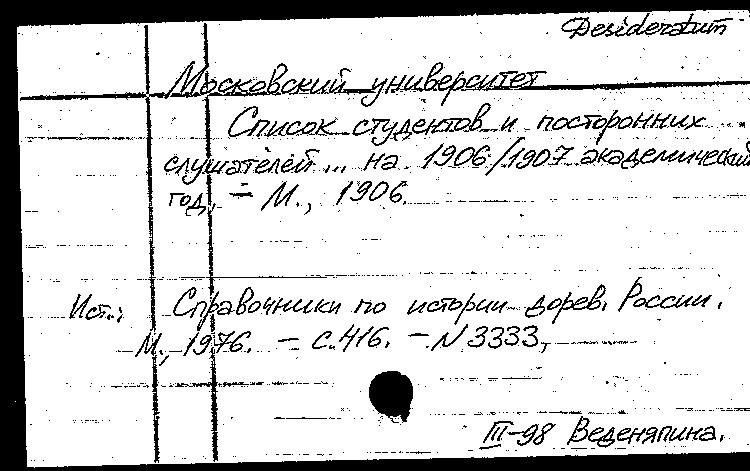 Desideratum
Московский университет
Список студентов и посторонних
слушателей... на 1906/1907 академический
год. – М., 1906.
Ист.: Справочники по истории дорев. России.
М., 1976. – с.416. – N 3333.
III-98 Веденяпина.